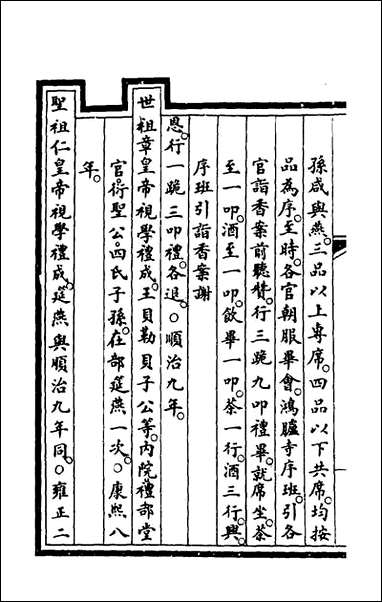 孫咸與燕。三品以上專席。四品以下共席。均按
品為序。至時。各官朝服畢會。鴻臚寺序班。引各
官詣香案前聽贊。行三跪九叩禮畢。就席坐。茶
至一叩。酒至一叩。飲畢一叩。茶一行。酒三行。興。
序班引詣香案謝
恩。行一跪三叩禮。各退。○順治九年。
世祖章皇帝視學禮成。王貝勒貝子公等。內院禮部堂
官。衍聖公。四氏子孫。在部筵燕一次。○康熙八
年。
聖祖仁皇帝視學禮成。筵燕與順治九年同。○雍正二